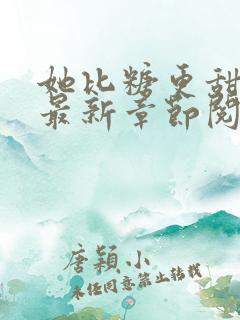 她比糖更甜
最新章节阅
唐颖小
未经同意禁止转载